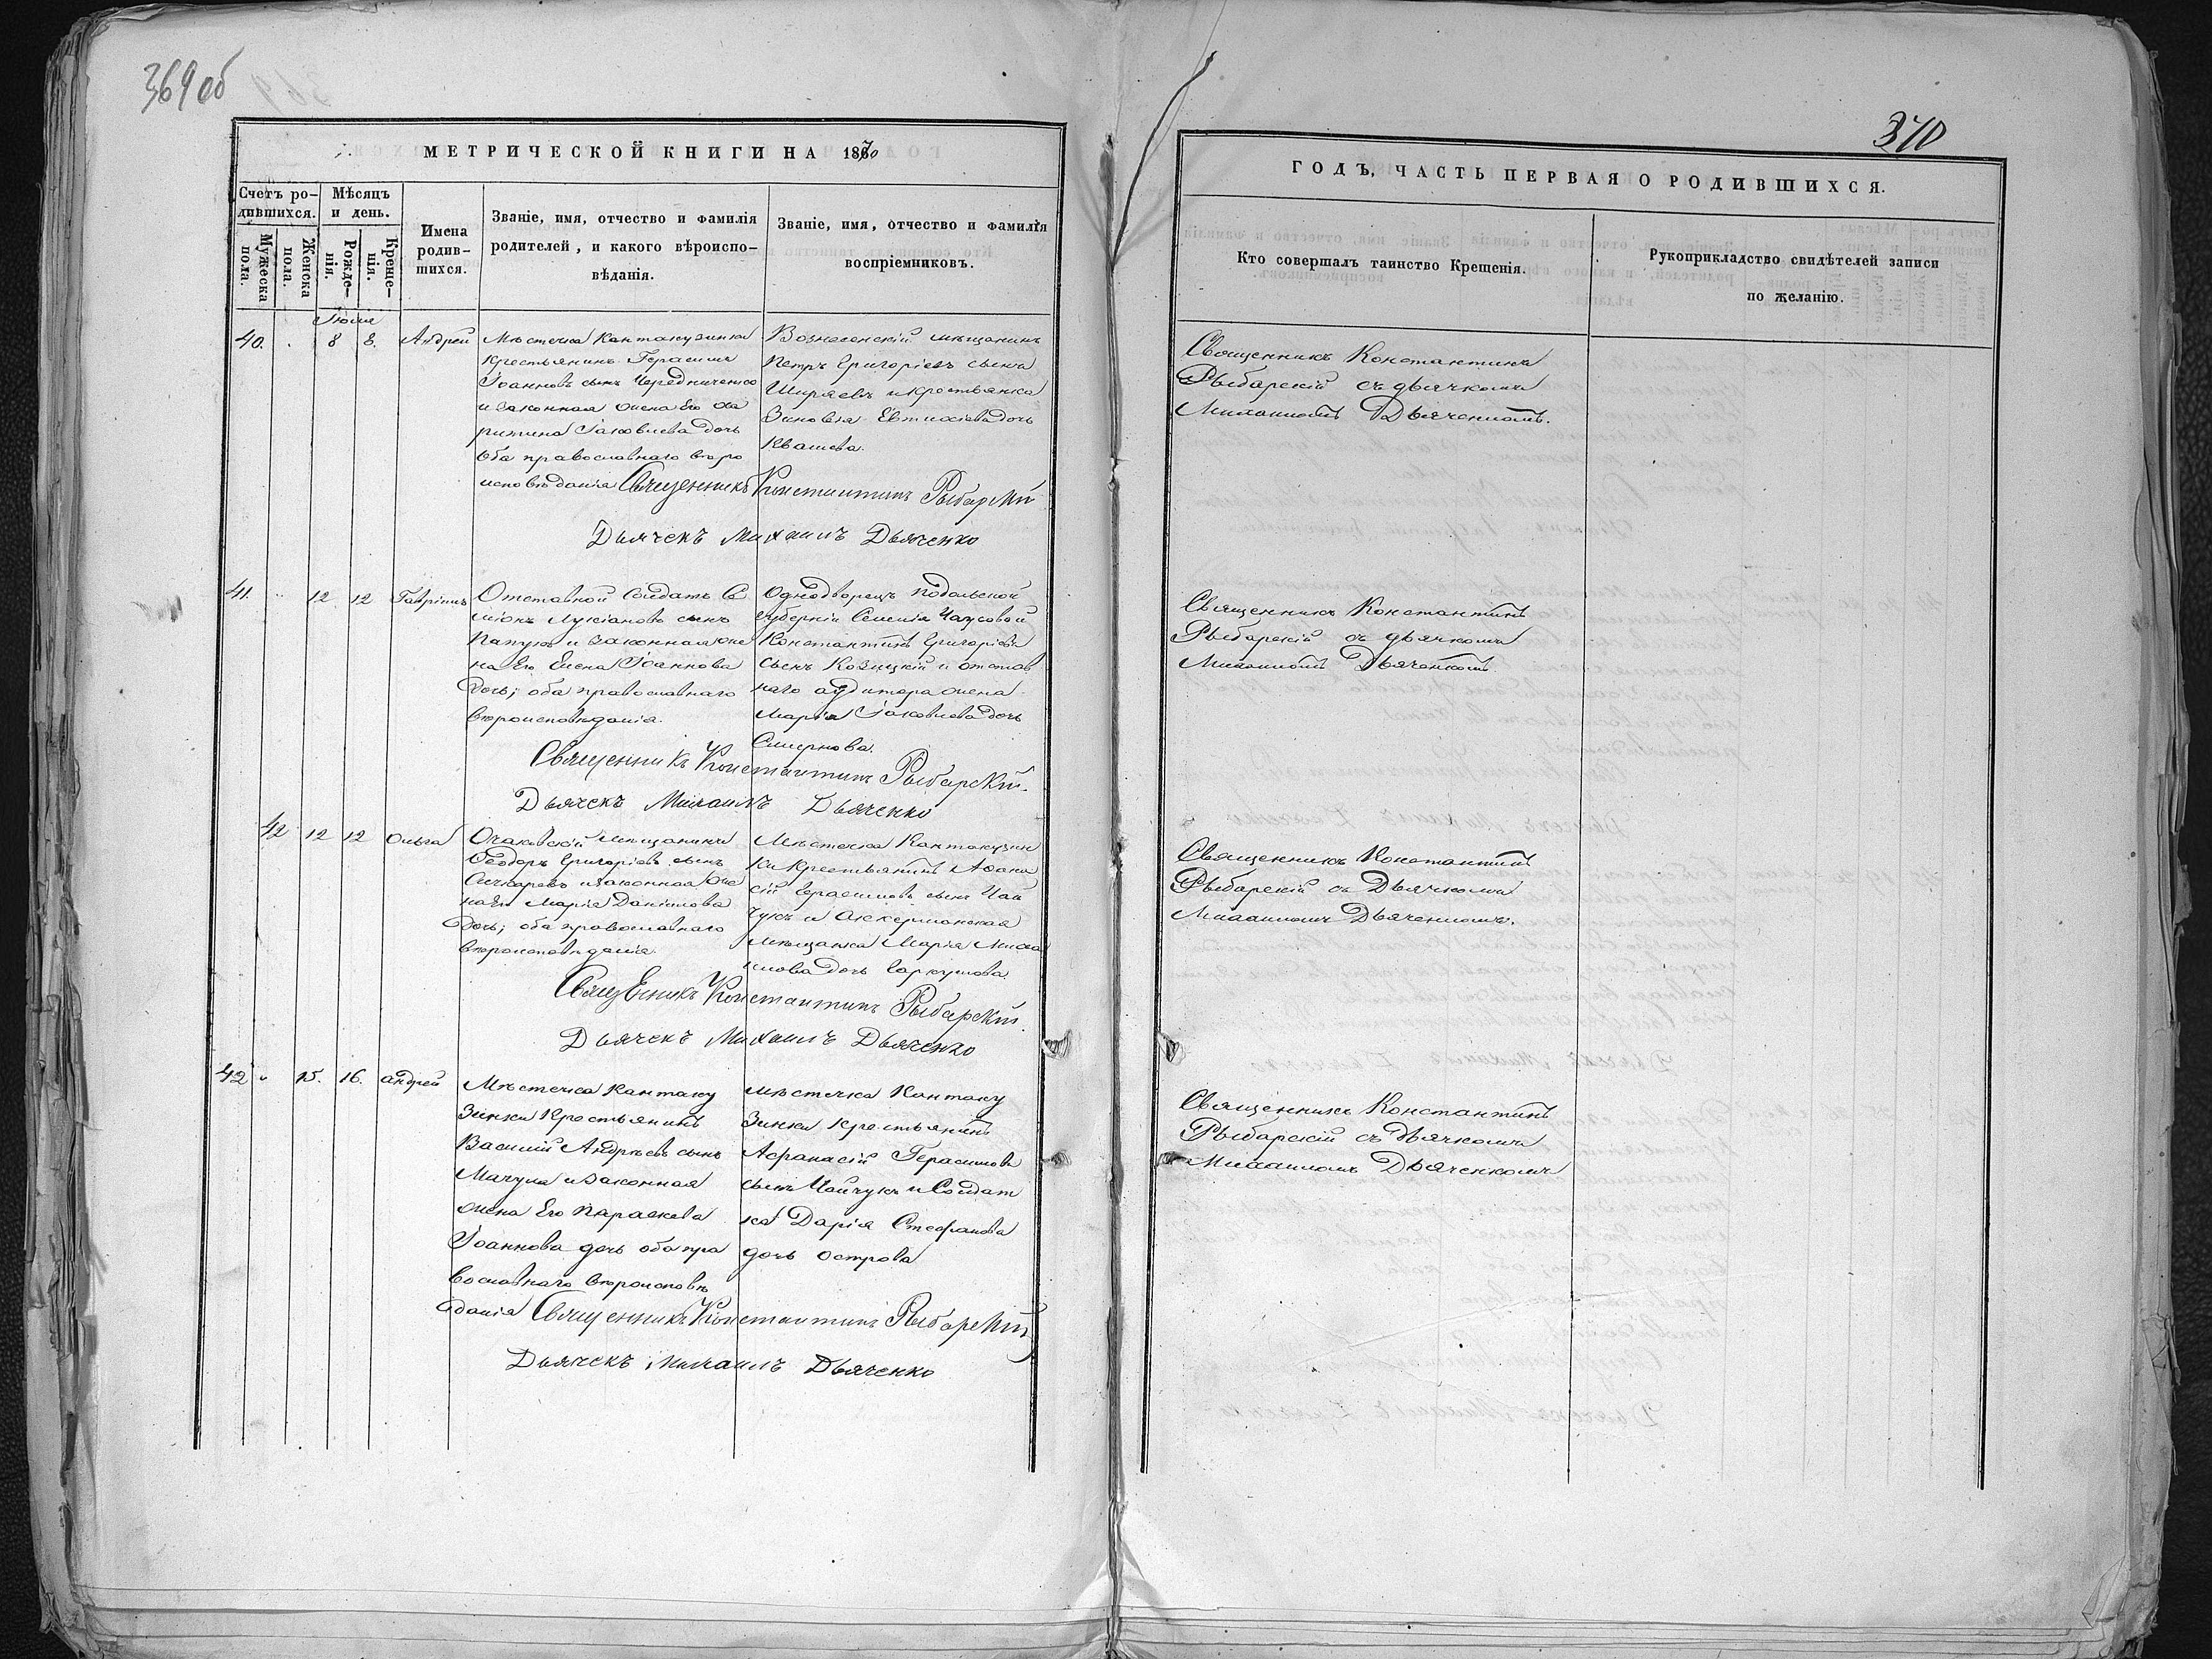 369 об
МЕТРИЧЕСКОЙ КНИГИ НА 1870
Счетъ ро-
дившихся.
Мѣсяцъ
и день.
Мужеска
пола.
Женска
пола.
Рожде-
нія.
Креще-
нія.
Имена
родив-
шихся.
Званіе, имя, отчество и фамилія
родителей, и какого вѣроиспо-
вѣданія.
Званіе, имя, отчество и фамилія
воспріемниковъ.
Июля
40. 8 8. Андрей
Мѣстечка Кантакузинки
крестьянинъ Герасимъ
Іоанновъ сынъ Чередниченко
и законная жена Его Ха
ритина Іаковлева дочь
оба православнаго вѣро
исповѣданія
Вознесенскій мѣщанинъ
Петръ Григоріевъ сынъ
Ширяевъ и крестьянка
Зиновія Евтихіева дочь
Квашева.
Священникъ Константинъ Рыбарскій
Дьячекъ Михаилъ Дьяченко
41. 12 12 Гавріилъ
Отставной Солдатъ Си
міонъ Лукіановъ сынъ
Папукъ и законная же
на Его Елена Іоаннова
дочь; оба православнаго
вѣроисповѣданія.
Однодворецъ Подольской
губерніи Селенія Чаусовой
Константинъ Григоріевъ
сынъ Козицкій и отстав
наго аудитора жена
Марія Іаковлева дочь
Смирнова.
Священникъ Константинъ Рыбарскій.
Дьячекъ Михаилъ Дьяченко
42 12 12 Ольга
Очаковскій мѣщанинъ
Ѳеодоръ Григоріевъ сынъ
и законная же
на Его Марія Даніилова
дочь; оба православнаго
вѣроисповѣданія.
Мѣстечка Кантакузин
ки крестьянинъ Афана
сій Герасимовъ сынъ Чай
чукъ и Аккерманская
мѣщанка Марія Михаи
лова дочь
Священникъ Константинъ Рыбарскій.
Дьячекъ Михаилъ Дьяченко
42 15. 16. Андрей
Мѣстечка Кантаку
зинки Крестьянинъ
Василій Андрѣевъ сынъ
Мачула и законная
жена Его Параскева
Іоаннова дочь оба пра
вославнаго вѣроисповѣ
данія
мѣстечка Кантаку
зинки крестьянинъ
Афанасій Герасимовъ
сынъ Чайчукъ и Солдат
ка Дарія Стефанова
дочь Острова
Священникъ Константинъ Рыбарскій
Дьячекъ Михаилъ Дьяченко
370
ГОДЪ, ЧАСТЬ ПЕРВАЯ О РОДИВШИХСЯ.
Кто совершалъ таинство Крещенія.
Рукоприкладство свидѣтелей записи
по желанію.
Священникъ Константинъ
Рыбарскій съ дьячкомъ
Михаиломъ Дьяченкомъ.
Священникъ Константинъ
Рыбарскій съ дьячкомъ
Михаиломъ Дьяченкомъ
Священникъ Константинъ
Рыбарскій съ Дьячкомъ
Михаиломъ Дьяченкомъ.
Священникъ Константинъ
Рыбарскій съ Дьячкомъ
Михаиломъ Дьяченкомъ